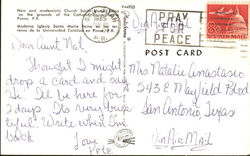 New and modernistic Church Santa Maria
on the grounds of the Catholic
Ponce, P.R.
Moderna Iglesia Santa Maria
rrenos de la Universidad Católica en Ponce, P.R.
1965
P.R.
PRAY
FOR
PEACE
POST CARD
Dear Aunt Nat,
Thought I might
drop a card and say
"Hi. I'll be here for
2 days. It's very beau-
tiful. Write when I'm
back
Love,
Pete
Mrs Natalie Anastasio
543 E Mayfield Blvd
San Antonio Texas
Via Air Mail